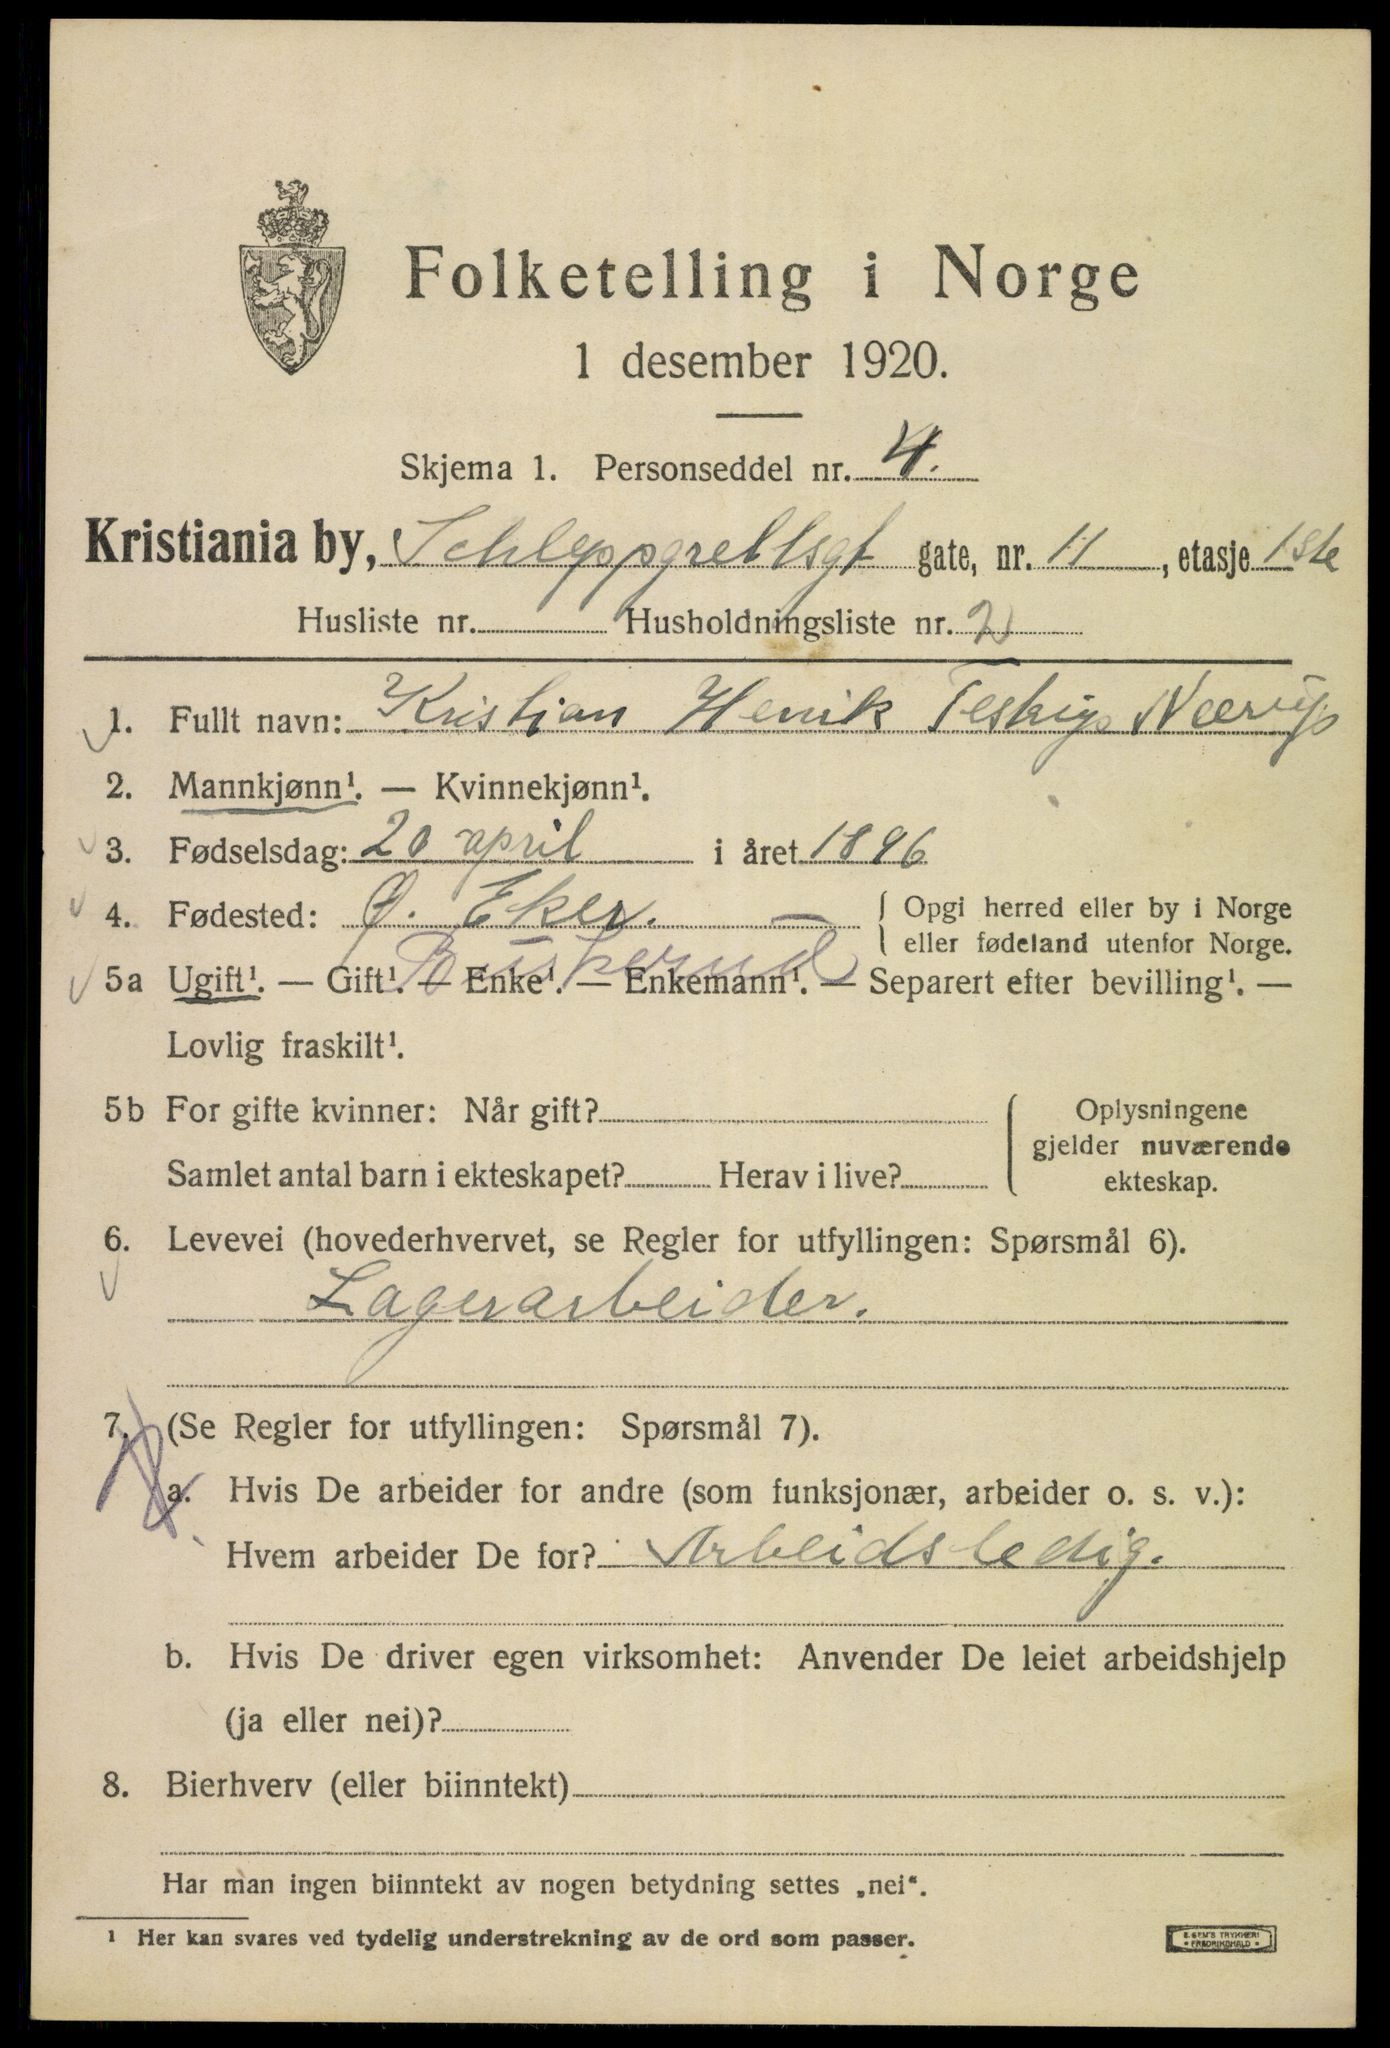 Folketelling i Norge
1 desember 1920.
Skjema 1. Personseddel nr. 4.
Kristiania by, Schleppgrellsgt gate, nr. 11, etasje 1ste
Husliste nr. Husholdningsliste nr. 2
1. Fullt navn: Kristian Henrik Neerup
2. Mannkjønn¹. — Kvinnekjønn¹.
3. Fødselsdag: 20 april i året 1896
4. Fødested: Ø. Eker. { Opgi herred eller by i Norge
eller fødeland utenfor Norge.
Buskerud
5a Ugift¹. — Gift¹. — Enke¹. — Enkemann¹. — Separert efter bevilling¹. —
Lovlig fraskilt¹.
5b For gifte kvinner: Når gift? { Oplysningene
gjelder nuværende
Samlet antal barn i ekteskapet? Herav i live? ekteskap.
6. Levevei (hovederhvervet, se Regler for utfyllingen: Spørsmål 6).
Lagerarbeider.
7. (Se Regler for utfyllingen: Spørsmål 7).
a. Hvis De arbeider for andre (som funksjonær, arbeider o. s. v.):
Hvem arbeider De for? Arbeidsledig.
b. Hvis De driver egen virksomhet: Anvender De leiet arbeidshjelp
(ja eller nei)?
8. Bierhverv (eller biinntekt)
Har man ingen biinntekt av nogen betydning settes „nei".
¹ Her kan svares ved tydelig understrekning av de ord som passer.
E. SEM'S TRYKKERI
• FREDRIKSHALD •